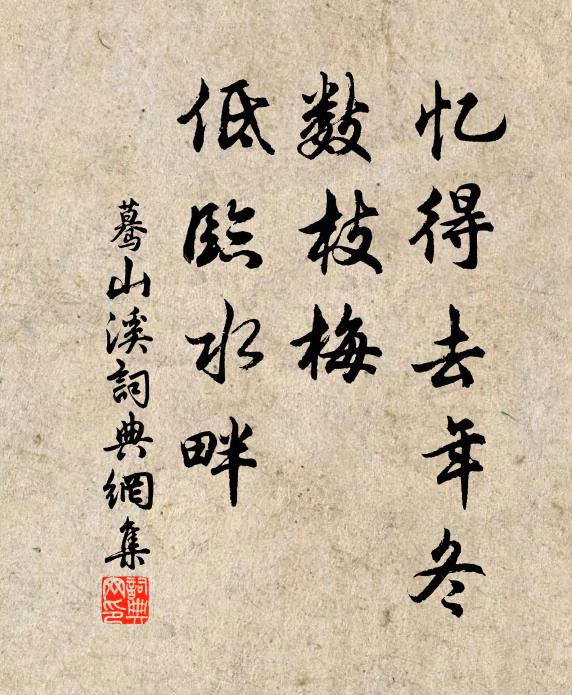 忆得去年冬
数枝梅
低临水畔
蓦山溪词典网集
词典网印